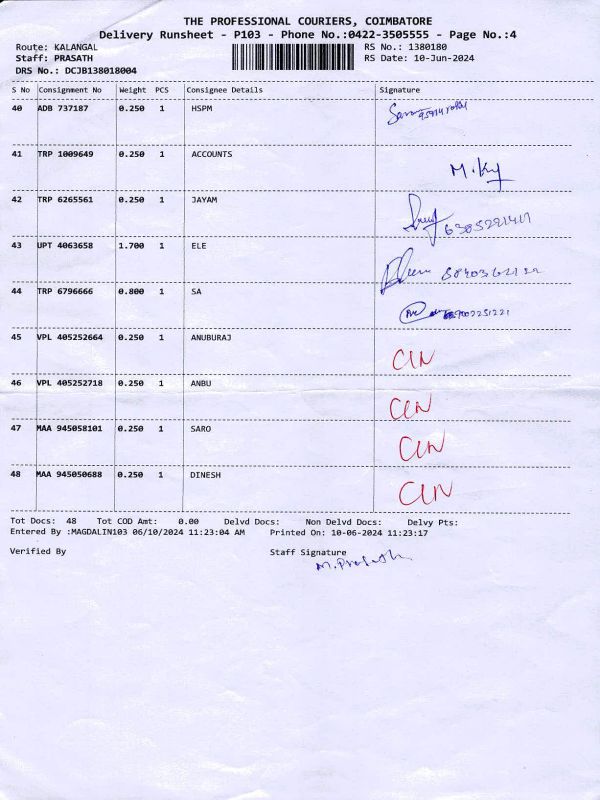 THE PROFESSIONAL COURIERS, COIMBATORE
Delivery Runsheet - P103 - Phone No.:0422-3505555 - Page No.:4
Route: KALANGAL RS No.: 1380180
Staff: PRASATH RS Date: 10-Jun-2024
DRS No.: DCJB138018004
S No Consignment No Weight PCS Consignee Details Signature
40 ADB 737187 0.250 1 HSPM
41 TRP 1009649 0.250 1 ACCOUNTS
42 TRP 6265561 0.250 1 JAYAM
43 UPT 4063658 1.700 1 ELE
44 TRP 6796666 0.800 1 SA
45 VPL 405252664 0.250 1 ANUBURAJ
46 VPL 405252718 0.250 1 ANBU
47 MAA 945058101 0.250 1 SARO
48 MAA 945050688 0.250 1 DINESH
Tot Docs: 48 Tot COD Amt: 0.00 Delvd Docs: Non Delvd Docs: Delvy Pts:
Entered By :MAGDALIN103 06/10/2024 11:23:04 AM Printed On: 10-06-2024 11:23:17
Verified By Staff Signature
M.Prasath